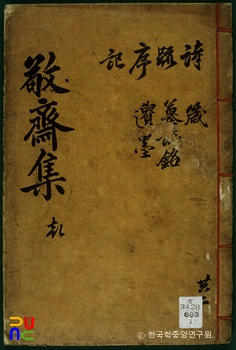 敬齋集
詩 箴
疏 墓碣銘
序 遺墨
記
古
3428
693
1
ⓒ 한국학중앙연구원